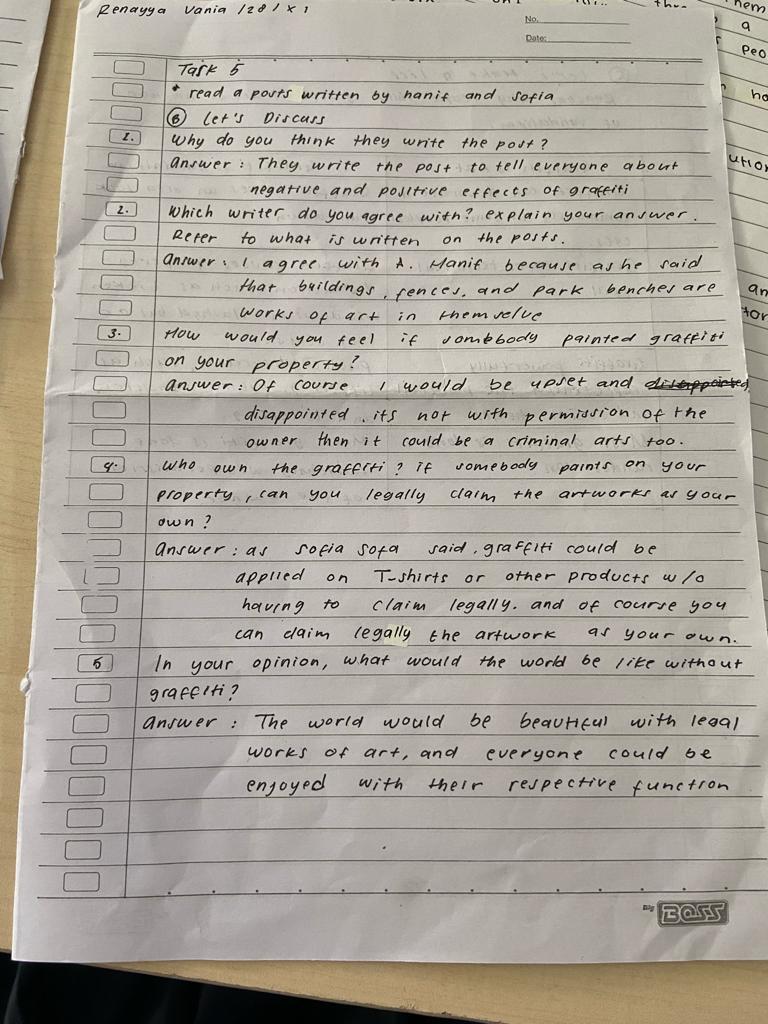 Renayya Vania /28 / X 1
No.
Date:
Task 5
* read a posts written by hanif and sofia
B Let's Discuss
1. Why do you think they write the post?
Answer : They write the post to tell everyone about
negative and positive effects of graffiti
2. Which writer do you agree with? explain your answer.
Refer to what is written on the posts.
Answer : I agree with A. Hanif because as he said
that buildings, fences, and park benches are
works of art in themselve
3. How would you feel if sombbody painted graffiti
on your property?
Answer : Of course I would be upset and disappointed
disappointed. its not with permission of the
owner then it could be a criminal arts too.
4. Who own the graffiti? if somebody paints on your
property, can you legally claim the artworks as your
own?
Answer : as sofia sofa said. graffiti could be
applied on T-shirts or other products w/o
having to claim legally. and of course you
can claim legally the artwork as your own.
5 In your opinion, what would the world be like without
graffiti?
Answer : The world would be beautiful with legal
works of art, and everyone could be
enjoyed with their respective function
Big BOSS